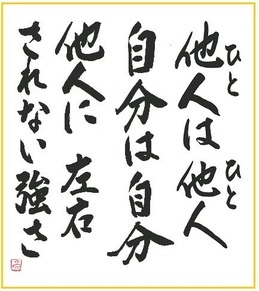 他人は他人
ひと ひと
自分は自分
他人に 左右
されない強さ